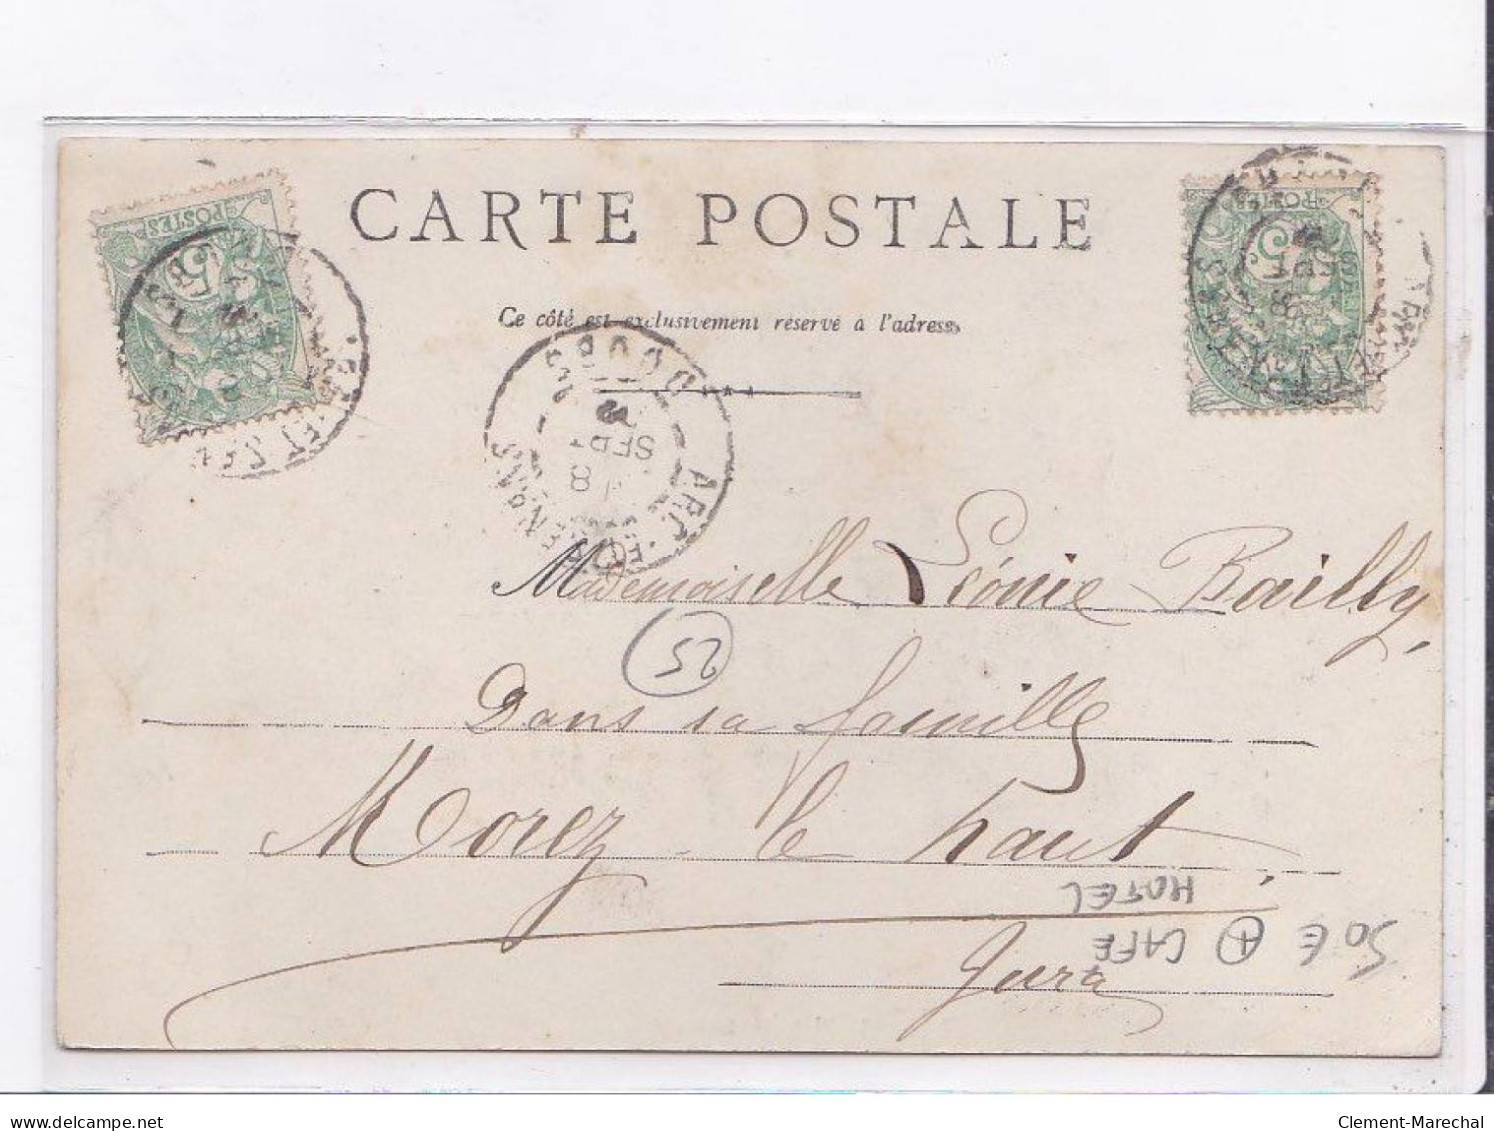 CARTE POSTALE
Ce côté est exclusivement réservé à l'adresse
POSTES
5
POSTES
5
DOUBS
SEPT
8
ARC-ET-SENANS
Mademoiselle Léonie Bailly,
25
Dans sa famille
Morez-le haut,
Jura
HOTEL
50 € + CAFE
delcampe.net
Clement-Marechal